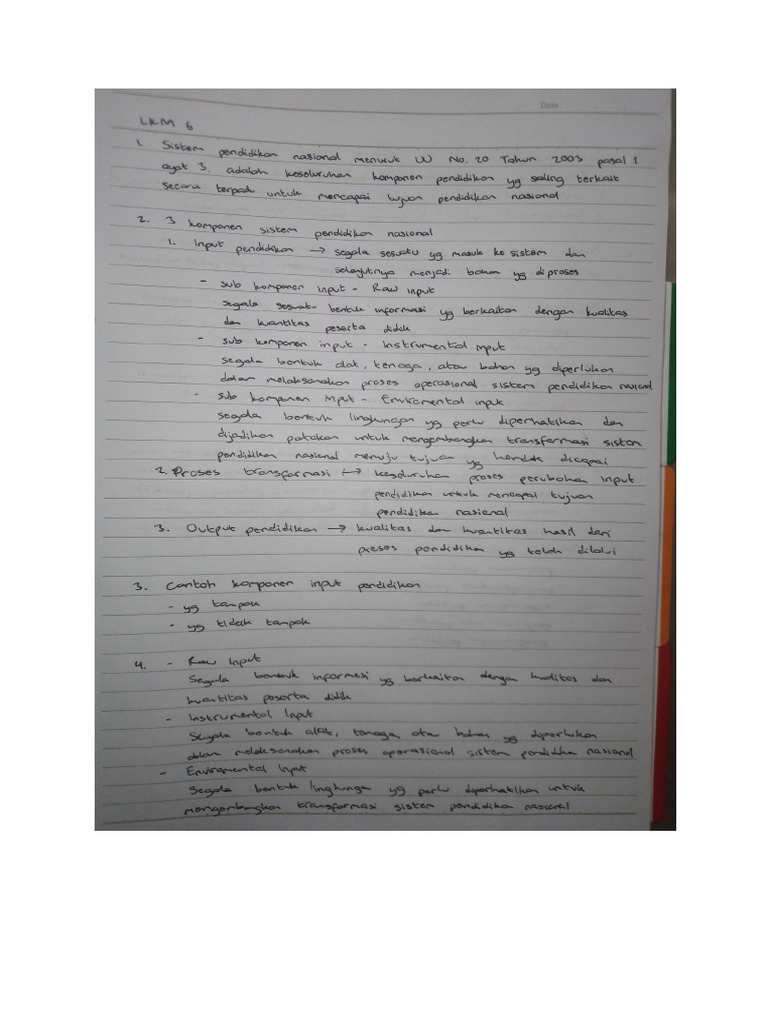 Date
LKM 6
1. Sistem pendidikan nasional menurut UU No. 20 Tahun 2003 pasal 1
ayat 3, adalah keseluruhan komponen pendidikan yg saling terkait
secara terpadu untuk mencapai tujuan pendidikan nasional
2. 3 komponen sistem pendidikan nasional
1. Input pendidikan → segala sesuatu yg masuk ke sistem dan
selanjutnya menjadi bahan yg diproses
- sub komponen input - Raw input
segala sesuatu bentuk informasi yg berkaitan dengan kualitas
dan kuantitas peserta didik
- sub komponen input - Instrumental input
segala bentuk alat, tenaga, atau bahan yg diperlukan
dalam melaksanakan proses operasional sistem pendidikan nasional
- sub komponen input - Enviromental input
segala bentuk lingkungan yg perlu diperhatikan dan
dijadikan patokan untuk mengembangkan transformasi sistem
pendidikan nasional menuju tujuan yg hendak dicapai
2. Proses transformasi → keseluruhan proses perubahan input
pendidikan untuk mencapai tujuan
pendidikan nasional
3. Output pendidikan → kualitas dan kuantitas hasil dari
proses pendidikan yg telah dilalui
3. Contoh komponen input pendidikan
- yg tampak
- yg tidak tampak
4. - Raw Input
Segala bentuk informasi yg berkaitan dengan kualitas dan
kuantitas peserta didik
- Instrumental Input
Segala bentuk alat, tenaga, atau bahan yg diperlukan
dalam melaksanakan proses operasional sistem pendidika nasional
- Enviromental Input
Segala bentuk lingkunga yg perlu diperhatikan untuk
mengembangkan transformasi sistem pendidika nasional